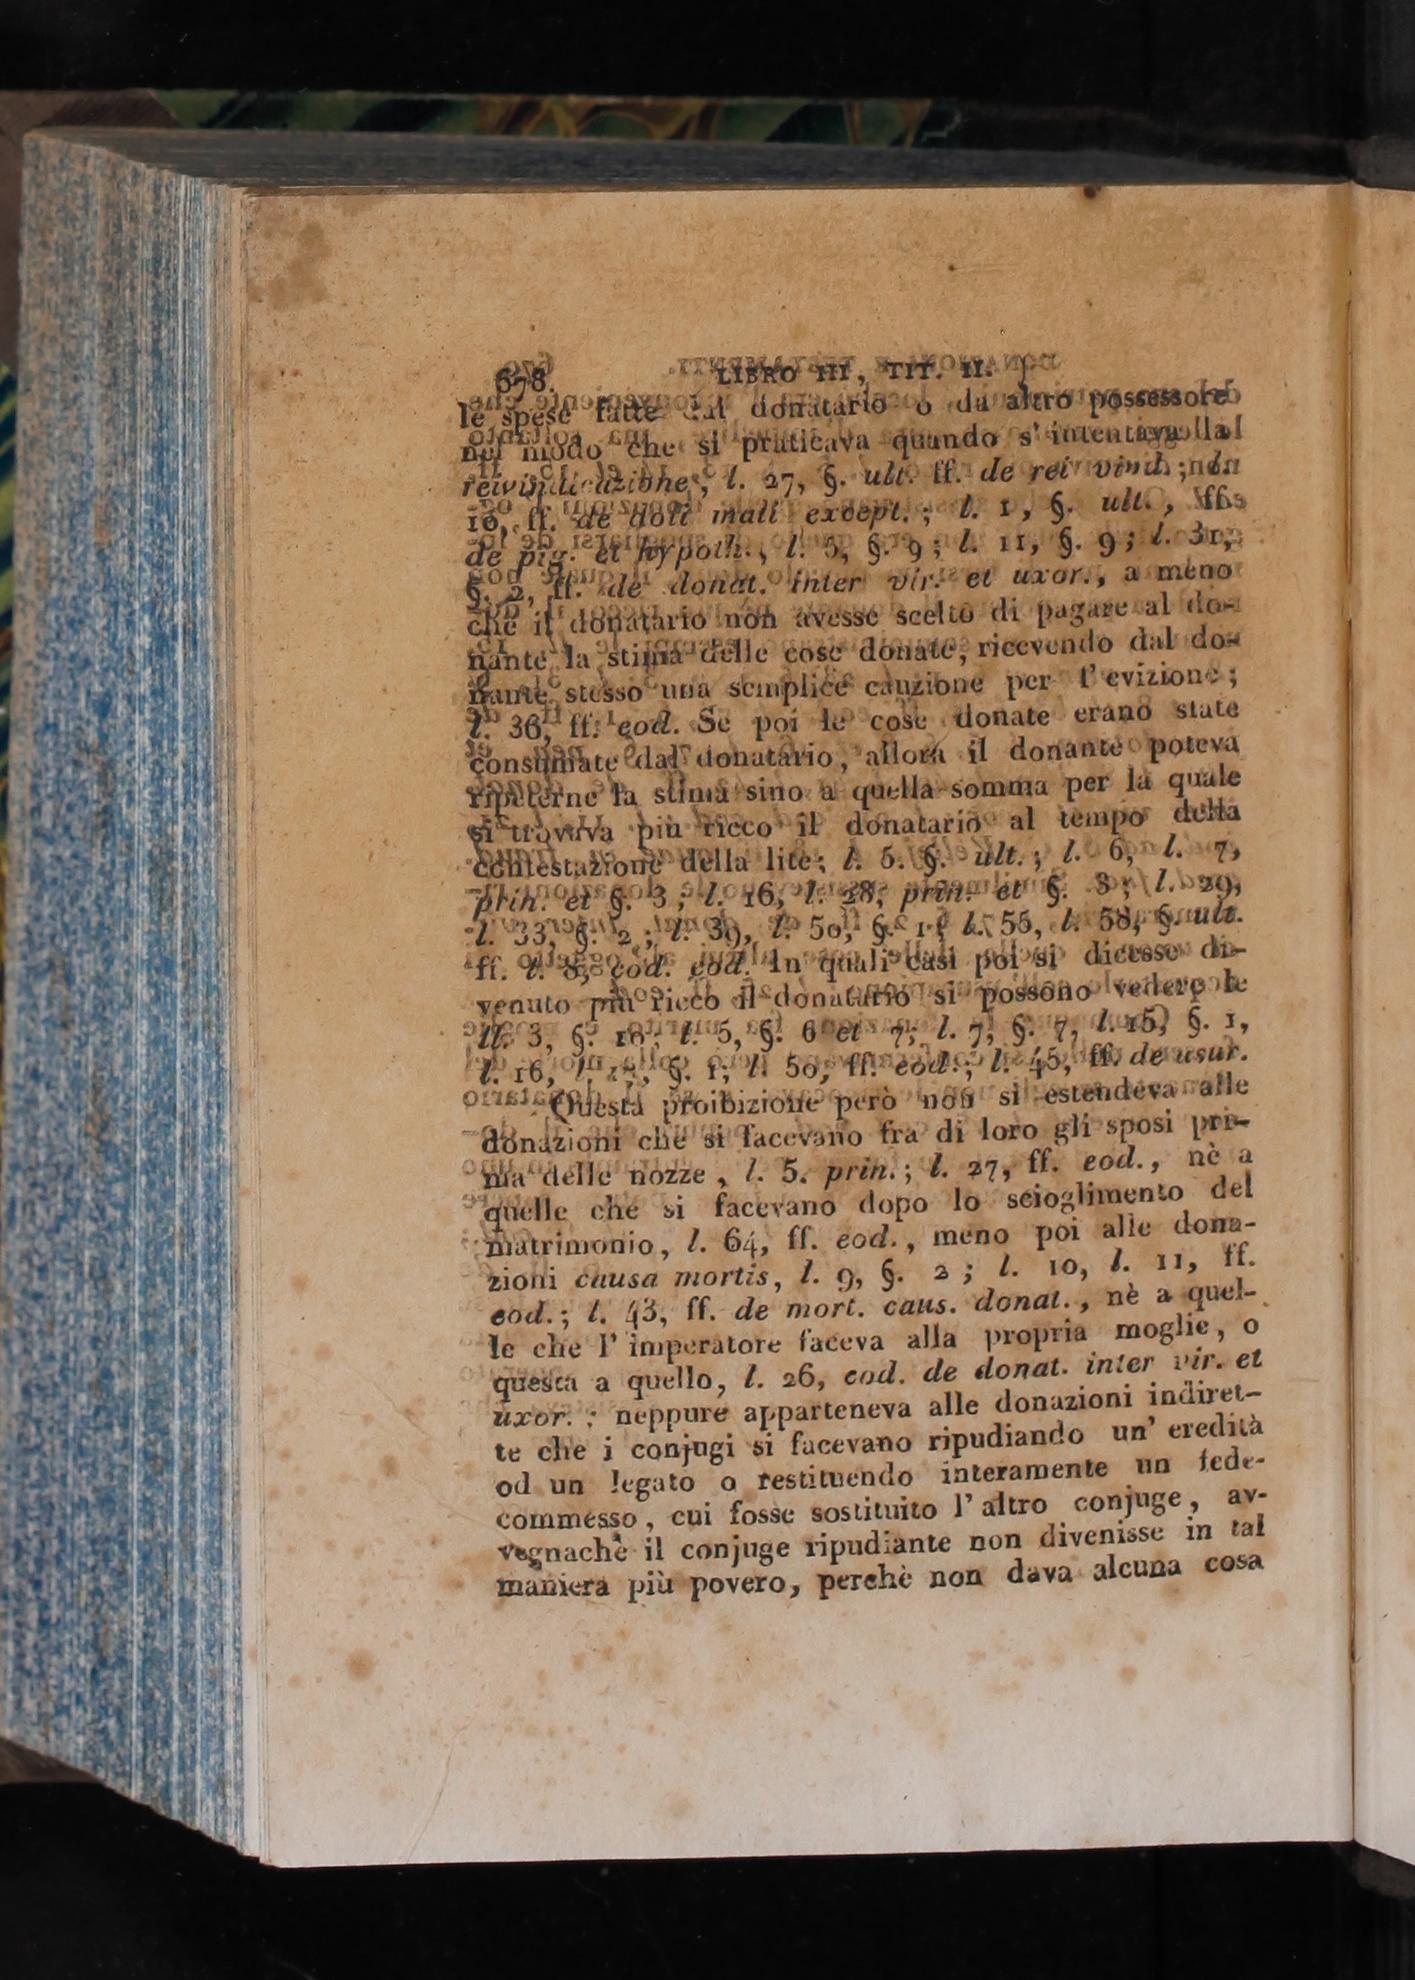 678 LIBRO III, TIT. II.
le spese fatte dal donatario o da altro possessore
nel modo che si praticava quando s' intentava la
reivindicazione, l. 27, §. ult. ff. de rei vind.;
ff. de doli mali except.; l. 1, §. ult., ff.
de pig. et hypoth., l. 5, §. 9; l. 11, §. 9; l. 31,
§. 2, ff. de donat. inter vir. et uxor., a meno
che il donatario non avesse scelto di pagare al do-
nante la stima delle cose donate, ricevendo dal do-
nante stesso una semplice cauzione per l' evizione;
l. 36, ff. eod. Se poi le cose donate erano state
consumate dal donatario, allora il donante poteva
ripeterne la stima sino a quella somma per la quale
si trovava più ricco il donatario al tempo della
contestazione della lite; l. 5. §. ult.; l. 6, l. 7,
prin. et §. 3; l. 16, l. 28, prin. et §. 3; l. 29,
l. 33, §. 2; l. 39, l. 50, §. 1; l. 55, l. 58, §. ult.
ff. l. 8, cod. eod. In quali casi poi si dicesse di-
venuto più ricco il donatario si possono vedere le
ll. 3, §. 18, l. 5, §. 6 et 7; l. 7, §. 7, l. 15, §. 1,
l. 16, §. 1; l. 50, ff. eod.; l. 45, ff. de usur.
Questa proibizione però non si estendeva alle
donazioni che si facevano fra di loro gli sposi pri-
ma delle nozze, l. 5. prin.; l. 27, ff. eod., nè a
quelle che si facevano dopo lo scioglimento del
matrimonio, l. 64, ff. eod., meno poi alle dona-
zioni causa mortis, l. 9, §. 2; l. 10, l. 11, ff.
eod.; l. 43, ff. de mort. caus. donat., nè a quel-
le che l' imperatore faceva alla propria moglie, o
questa a quello, l. 26, cod. de donat. inter vir. et
uxor.; neppure apparteneva alle donazioni indiret-
te che i conjugi si facevano ripudiando un' eredità
od un legato o restituendo interamente un fede-
commesso, cui fosse sostituito l' altro conjuge, av-
vegnachè il conjuge ripudiante non divenisse in tal
maniera più povero, perchè non dava alcuna cosa